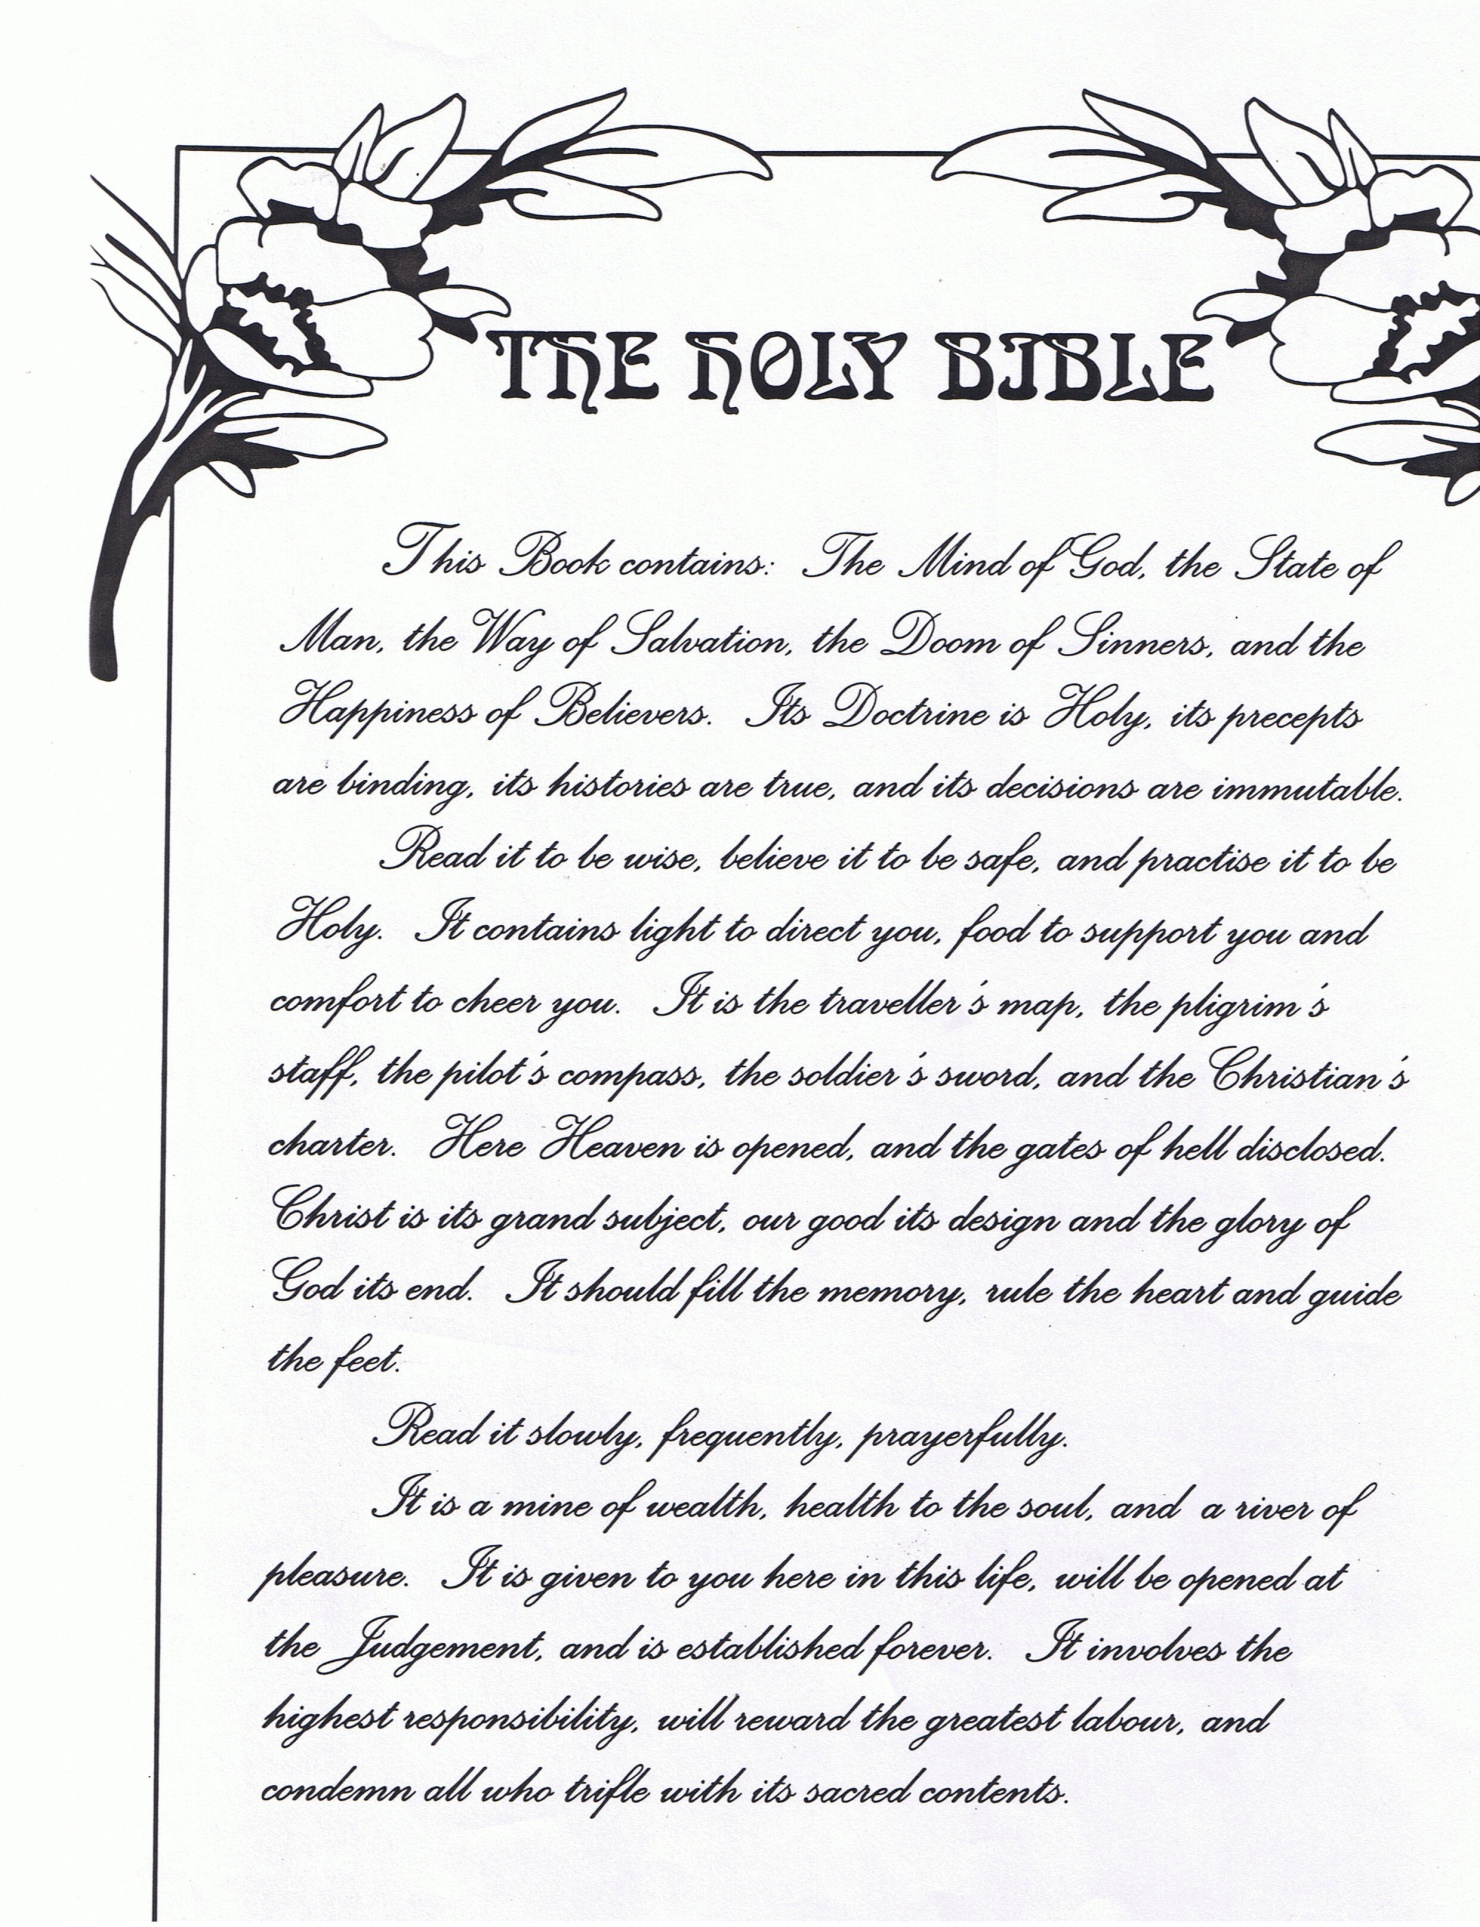 THE HOLY BIBLE
This Book contains: The Mind of God, the State of
Man, the Way of Salvation, the Doom of Sinners, and the
Happiness of Believers. Its Doctrine is Holy, its precepts
are binding, its histories are true, and its decisions are immutable.
Read it to be wise, believe it to be safe, and practise it to be
Holy. It contains light to direct you, food to support you and
comfort to cheer you. It is the traveller's map, the pligrim's
staff, the pilot's compass, the soldier's sword, and the Christian's
charter. Here Heaven is opened, and the gates of hell disclosed.
Christ is its grand subject, our good its design and the glory of
God its end. It should fill the memory, rule the heart and guide
the feet.
Read it slowly, frequently, prayerfully.
It is a mine of wealth, health to the soul, and a river of
pleasure. It is given to you here in this life, will be opened at
the Judgement, and is established forever. It involves the
highest responsibility, will reward the greatest labour, and
condemn all who trifle with its sacred contents.